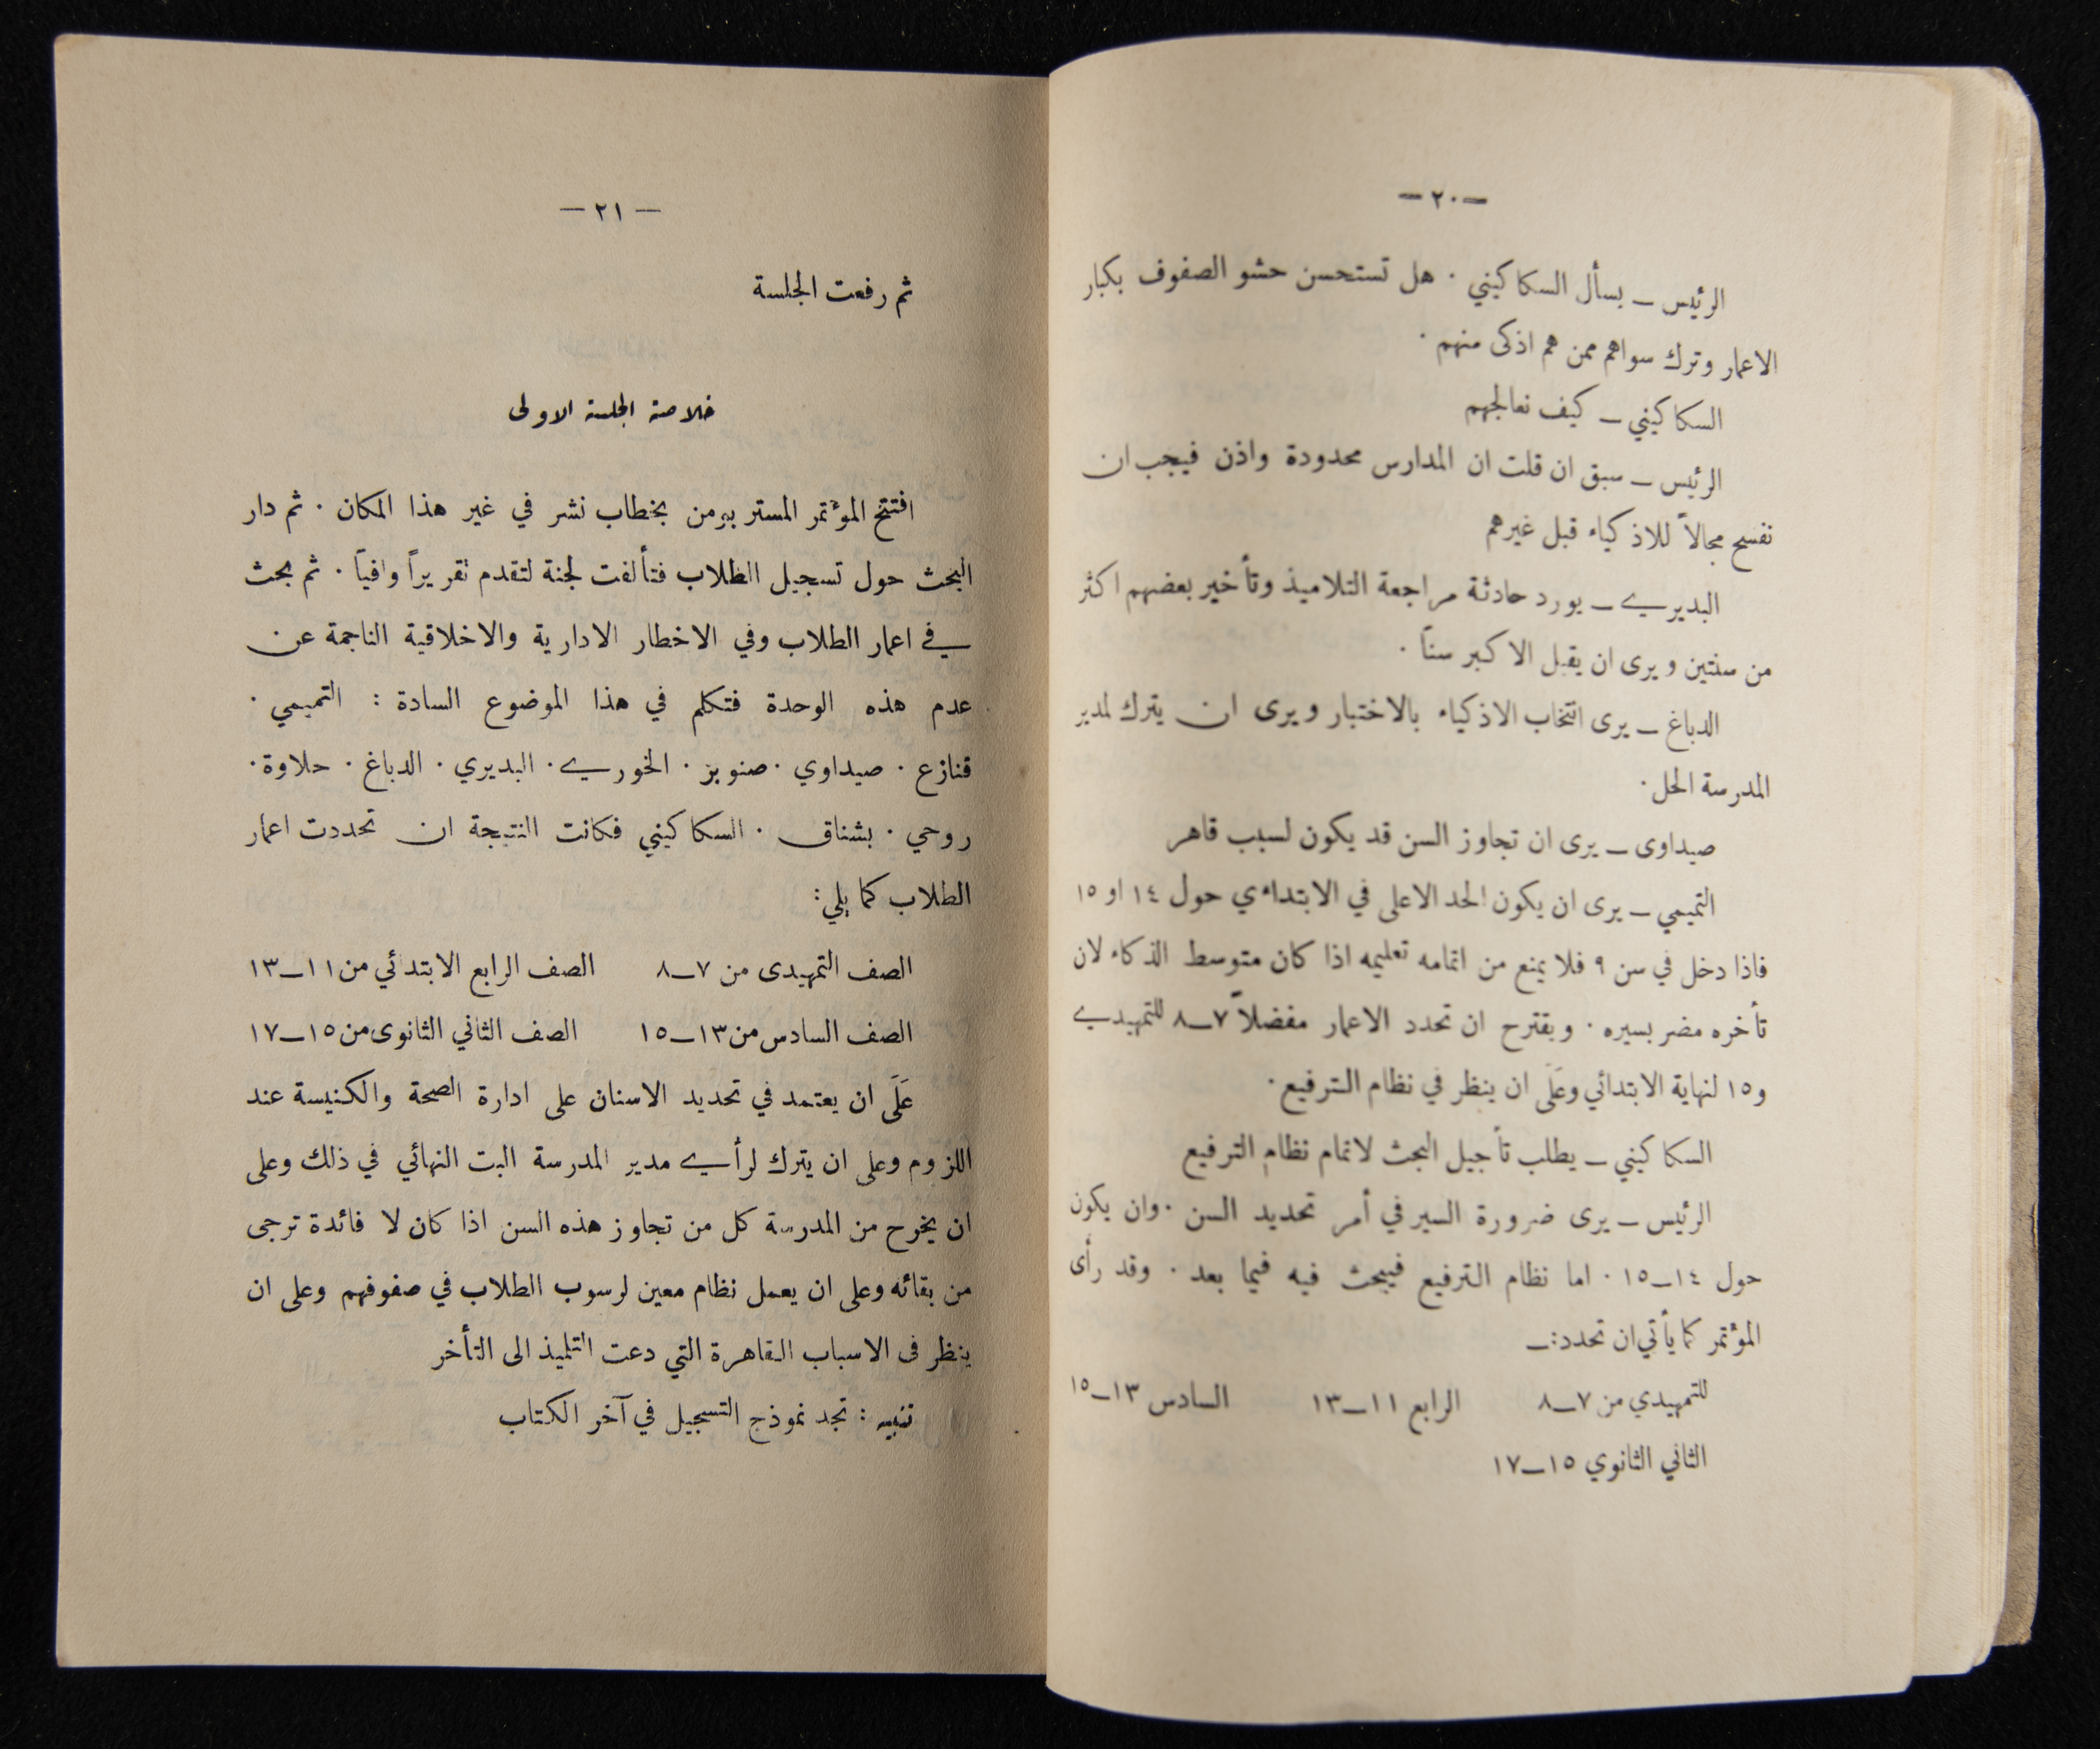 — ٢٠ —
الرئيس — يسأل السكاكيني . هل تستحسن حشو الصفوف بكبار
الاعمار وترك سواهم ممن هم اذكى منهم .
السكاكيني — كيف نعالجهم
الرئيس — سبق ان قلت ان المدارس محدودة واذن فيجب ان
نفسح مجالاً للاذكياء قبل غيرهم
البديري — يورد حادثة مراجعة التلاميذ وتأخير بعضهم اكثر
من سنتين ويرى ان يقبل الاكبر سناً .
الدباغ — يرى انتخاب الاذكياء بالاختبار ويرى ان يترك لمدير
المدرسة الحل .
صيداوى — يرى ان تجاوز السن قد يكون لسبب قاهر
التميمي — يرى ان يكون الحد الاعلى في الابتداءي حول ١٤ او ١٥
فاذا دخل في سن ٩ فلا يمنع من اتمامه تعليمه اذا كان متوسط الذكاء لان
تأخره مضر بسيره . ويقترح ان تحدد الاعمار مفضلاً ٧—٨ للتمهيدي
و١٥ لنهاية الابتدائي وعَلَى ان ينظر في نظام الترفيع .
السكاكيني — يطلب تأجيل البحث لاتمام نظام الترفيع
الرئيس — يرى ضرورة السير في أمر تحديد السن . وان يكون
حول ١٤—١٥ . اما نظام الترفيع فيبحث فيه فيما بعد . وقد رأى
المؤتمر كما يأتي ان تحدد :—
للتمهيدي من ٧—٨ الرابع ١١—١٣ السادس ١٣—١٥
الثاني الثانوي ١٥—١٧
— ٢١ —
ثم رفعت الجلسة
خلاصة الجلسة الاولى
افتتح المؤتمر المستر بيرمن بخطاب نشر في غير هذا المكان . ثم دار
البحث حول تسجيل الطلاب فتألفت لجنة لتقدم تقريراً وافياً . ثم بحث
في اعمار الطلاب وفي الاخطار الادارية والاخلاقية الناجمة عن
عدم هذه الوحدة فتكلم في هذا الموضوع السادة : التميمي .
قنازع . صيداوي . صنوبر . الخوري . البديري . الدباغ . حلاوة .
روحي . بشناق . السكاكيني فكانت النتيجة ان تحددت اعمار
الطلاب كما يلي :
الصف التمهيدى من ٧—٨ الصف الرابع الابتدئي من ١١—١٣
الصف السادس من ١٣—١٥ الصف الثاني الثانوى من ١٥—١٧
عَلَى ان يعتمد في تحديد الاسنان على ادارة الصحة والكنيسة عند
اللزوم وعلى ان يترك لرأي مدير المدرسة البت النهائي في ذلك وعلى
ان يخرح من المدرسة كل من تجاوز هذه السن اذا كان لا فائدة ترجى
من بقائه وعلى ان يعمل نظام معين لرسوب الطلاب في صفوفهم وعلى ان
ينظر فى الاسباب القاهرة التي دعت التلميذ الى التأخر
تنبيه : تجد نموذج التسجيل في آخر الكتاب